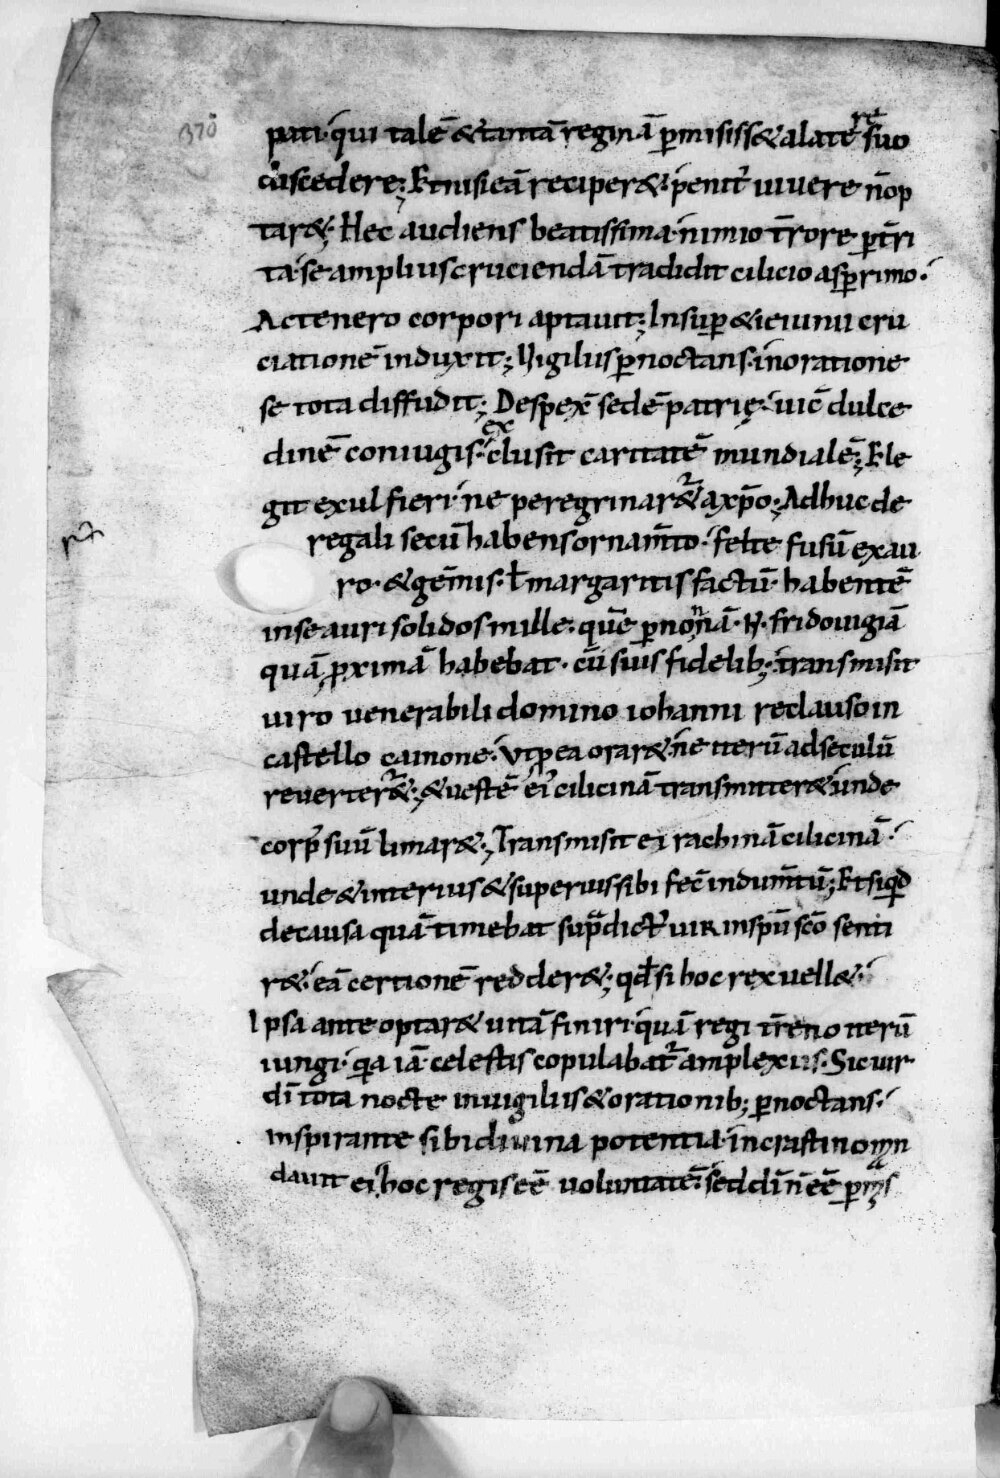 370
pati· qui talē &tantā reginā ꝑmisiss& alate re suo
discedere; Et nisi eā reciper&· penit᷒ uiuere n̄ op
tar&· Hec audiens beatissima· nimio t̄rore ꝑt̄ri
ta· se amplius cruciendā tradidit cilicio asꝑrimo·
Ac tenero corpori aptauit; Insuꝑ &ieiunii cru
ciationē induxit; Vigiliis ꝑnoctans· in oratione
se tota diffudit; Despex̄ sedē patrię· uic̄ dulce
dinē coniugis· exclusit caritatē mundialē; Ele
git exul fieri· ne peregrinar&᷑ a xp̄o; Adhuc de
regali secū habens ornam̄to· felte fusū ex au
ro· &gēmis· ł margaritis factū· habentē
in se auri solidos mille· quē ꝑ nonnā· N· fridouigiā
quā ꝓximā habebat· cū suis fidelib; transmisit
uiro uenerabili domino iohanni reclauso in
castello cainone· Vt ꝓ ea orar& ne iterū ad seculū
reuerter&᷑; &uestē ei cilicinā transmitter& unde
corp᷒ suū limar&; Transmisit ei rachinā cilicinā·
unde &interius &superius sibi fec̄ indum̄tū; Et siqd̄
de causa quā timebat sup̄dict᷒ uir in sp̄u sc̄o senti
r&· eā certionē redder&; qd̄ si hoc rex uell&·
Ipsa ante optar& uitā finiri· quā regi t̄reno iterū
iungi· qa iā celestis copulabat᷑ amplexiis· Sic uir
dī tota nocte in uigiliis &orationib; ꝑnoctans·
inspirante sibi diuina potentia· in crastino man
dauit ei· hoc regis eē uoluntatē· sed dī n̄ eē ꝑmis